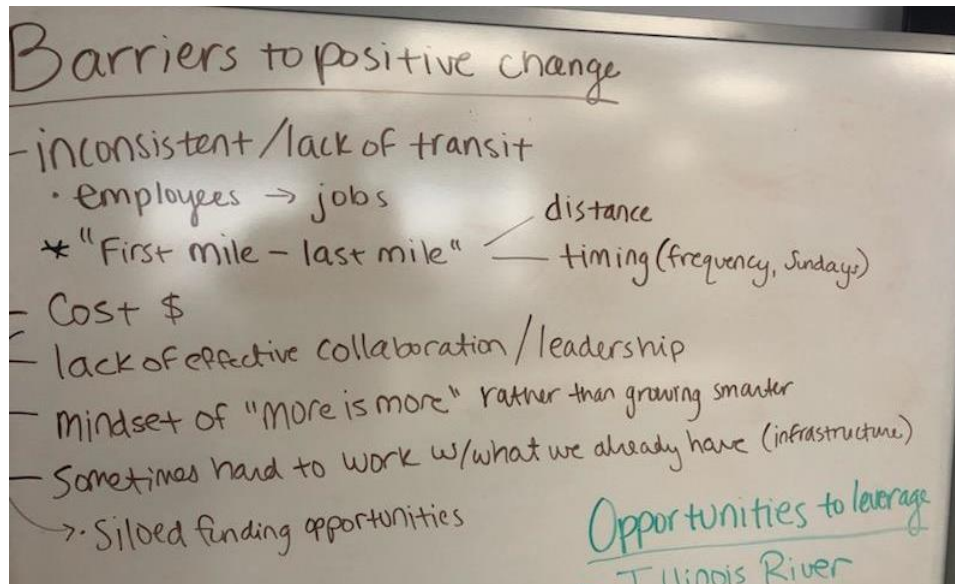 Barriers to positive change
- inconsistent/lack of transit
· employees → jobs
distance
* "First mile - last mile"
timing (frequency, Sundays)
- Cost $
- lack of effective collaboration/leadership
- mindset of "more is more" rather than growing smarter
- Sometimes hard to work w/what we already have (infrastructure)
→· Siloed funding opportunities
Opportunities to leverage
Illinois River